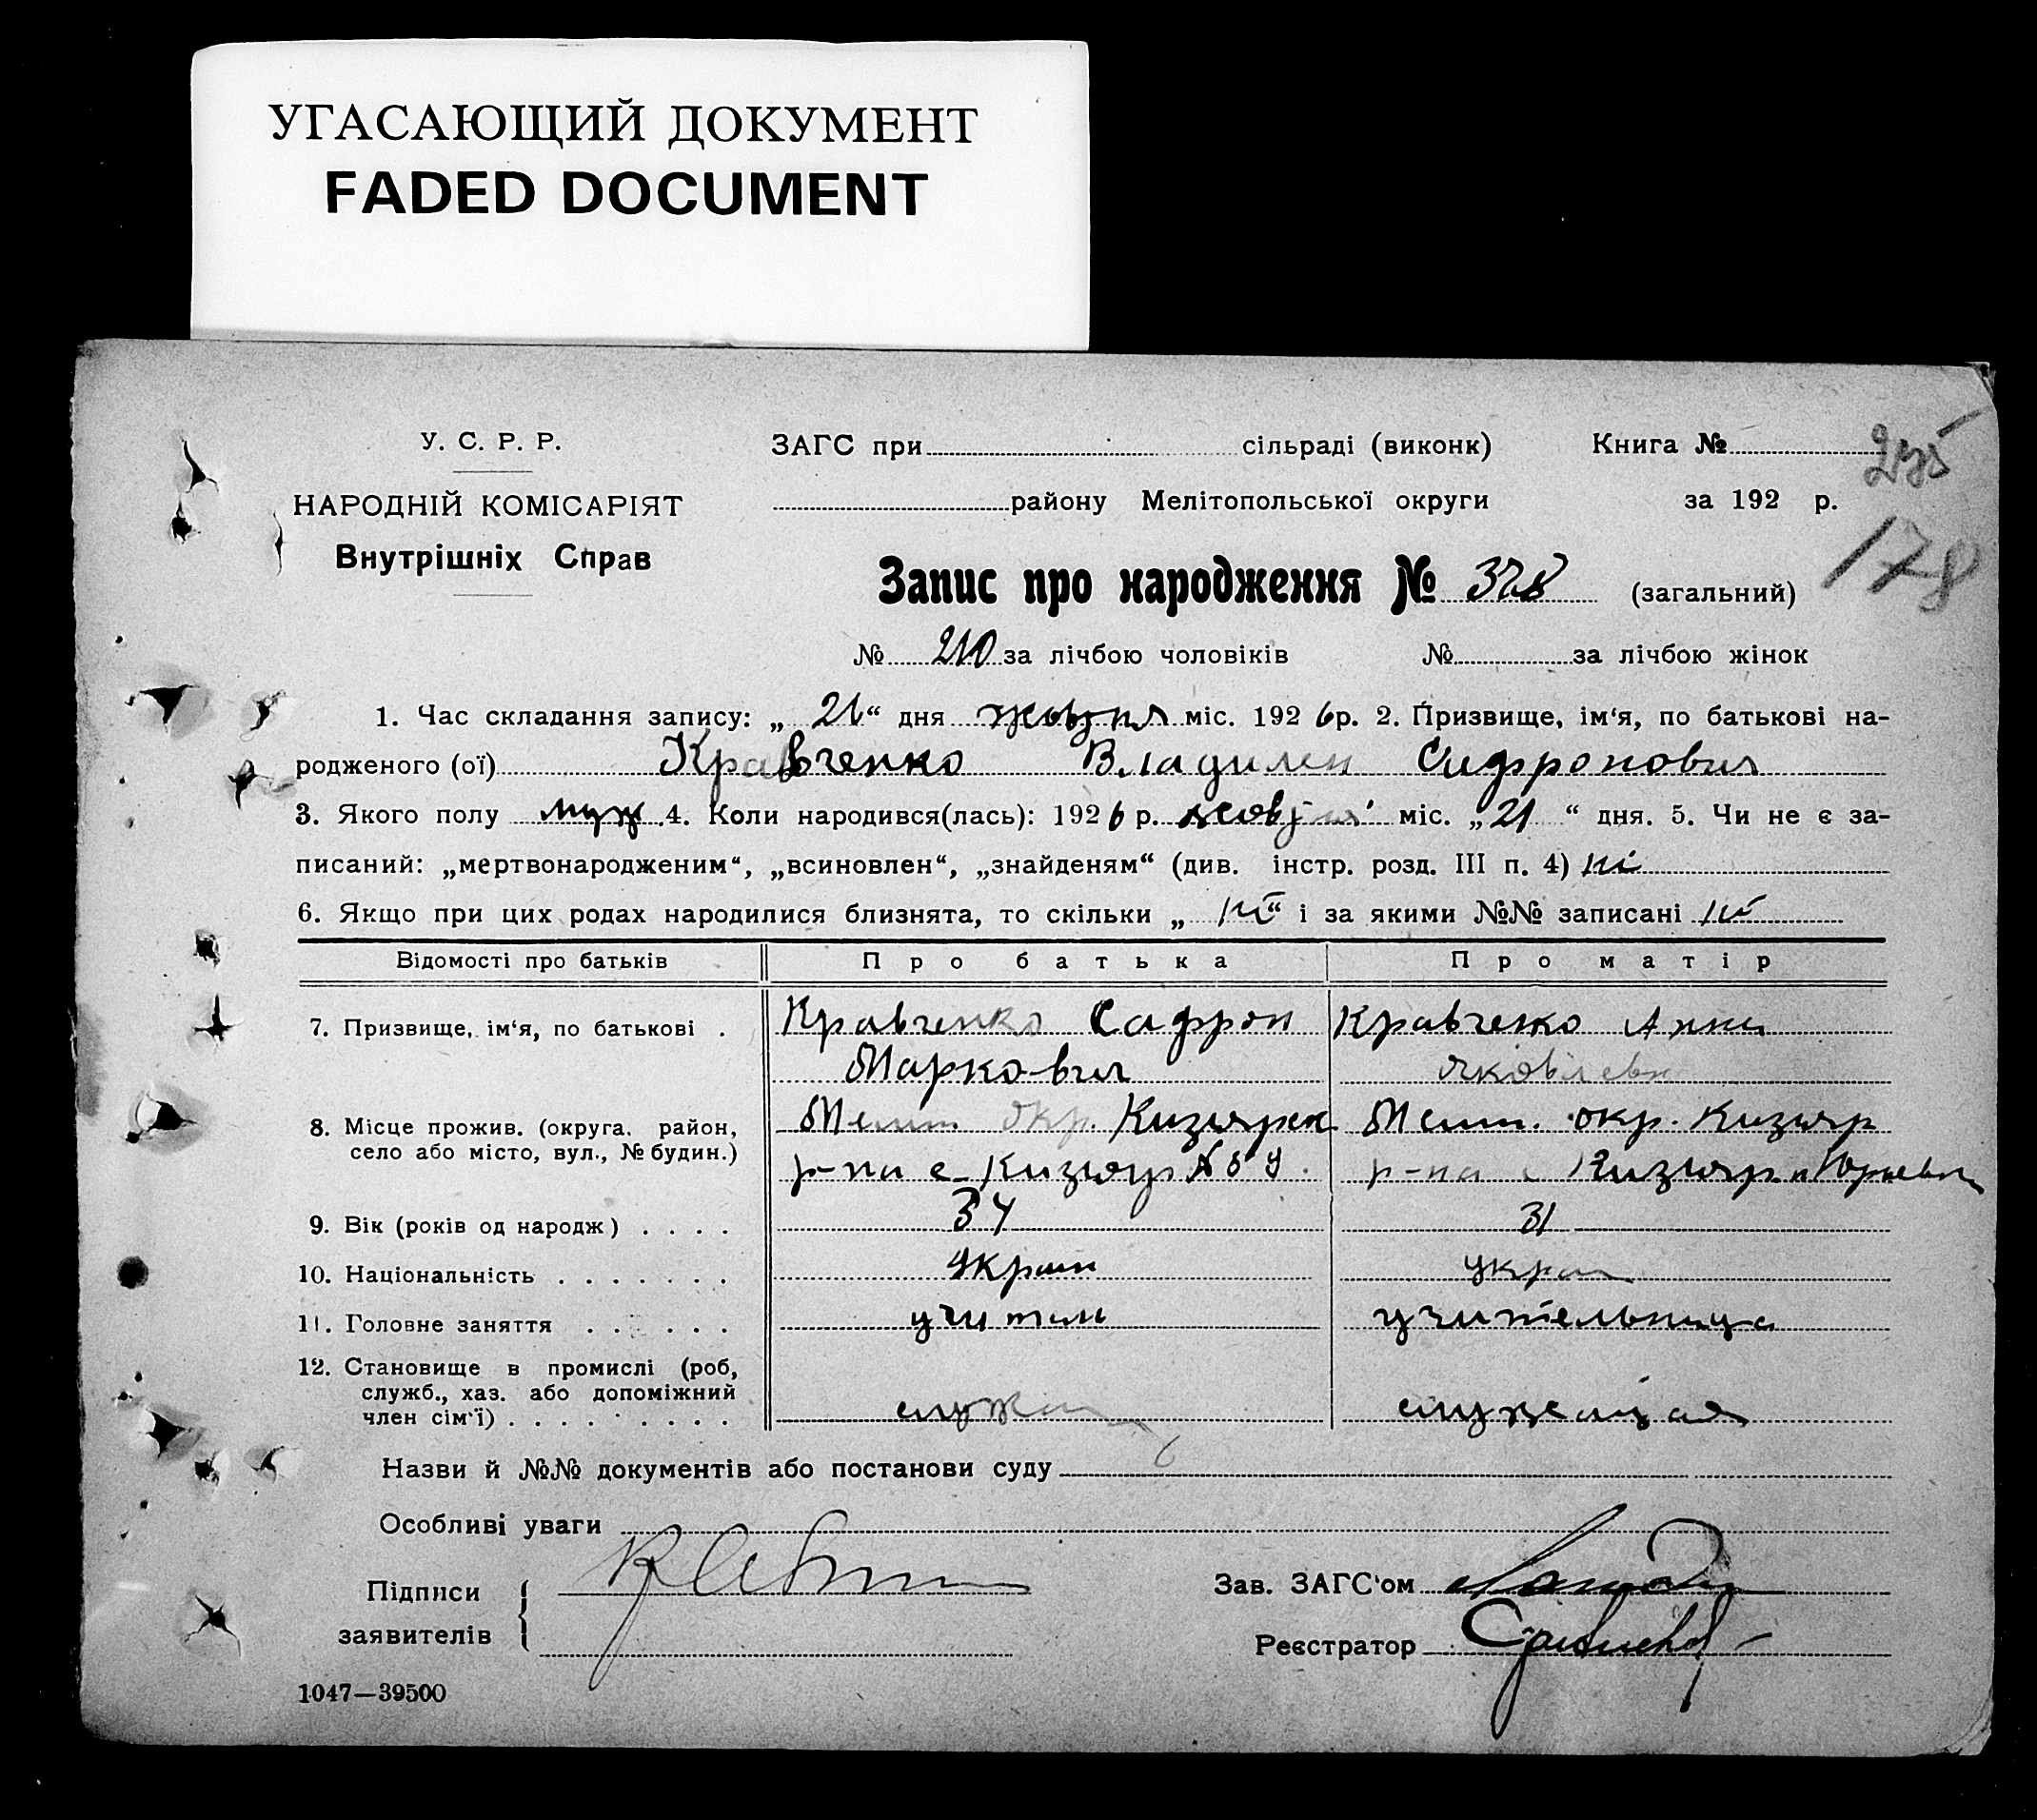 УГАСАЮЩИЙ ДОКУМЕНТ
FADED DOCUMENT
У. С. Р. Р.
НАРОДНІЙ КОМІСАРІЯТ
Внутрішніх Справ
ЗАГС при сільраді (виконк)
Книга №
району Мелітопольської округи
за 192 р.
178
Запис про народження № 378 (загальний)
№ 210 за лічбою чоловіків № за лічбою жінок
1. Час складання запису: „21“ дня жовтня міс. 1926 р. 2. Призвище, ім‘я, по батькові на-
родженого (ої) Кравченко Владилен Сафронович
3. Якого полу муж 4. Коли народився(лась): 1926 р. жовтня міс. „21“ дня. 5. Чи не є за-
писаний: „мертвонародженим“, „всиновлен“, „знайденям“ (див. інстр. розд. III п. 4) ні
6. Якщо при цих родах народилися близнята, то скільки „ні“ і за якими №№ записані ні
Відомості про батьків Про батька Про матір
7. Призвище, ім‘я, по батькові . Кравченко Сафрон Кравченко Анна
Маркович Яковлевн
8. Місце прожив. (округа. район, Мелит. окр. Кизиярск Мелит. окр. Кизияр
село або місто, вул., № будин.) р-на с. Кизияр р-на с Кизияр
9. Вік (років од народж) . . . . 34 31
10. Національність . . . . . . . украин украин
11. Головне заняття . . . . . . учитель учительница
12. Становище в промислі (роб,
служб., хаз. або допоміжний
член сім‘ї) . . . . . . . . . служащ служащая
Назви й №№ документів або постанови суду
Особливі уваги
Підписи
заявителів
Зав. ЗАГС‘ом
Реєстратор
1047—39500